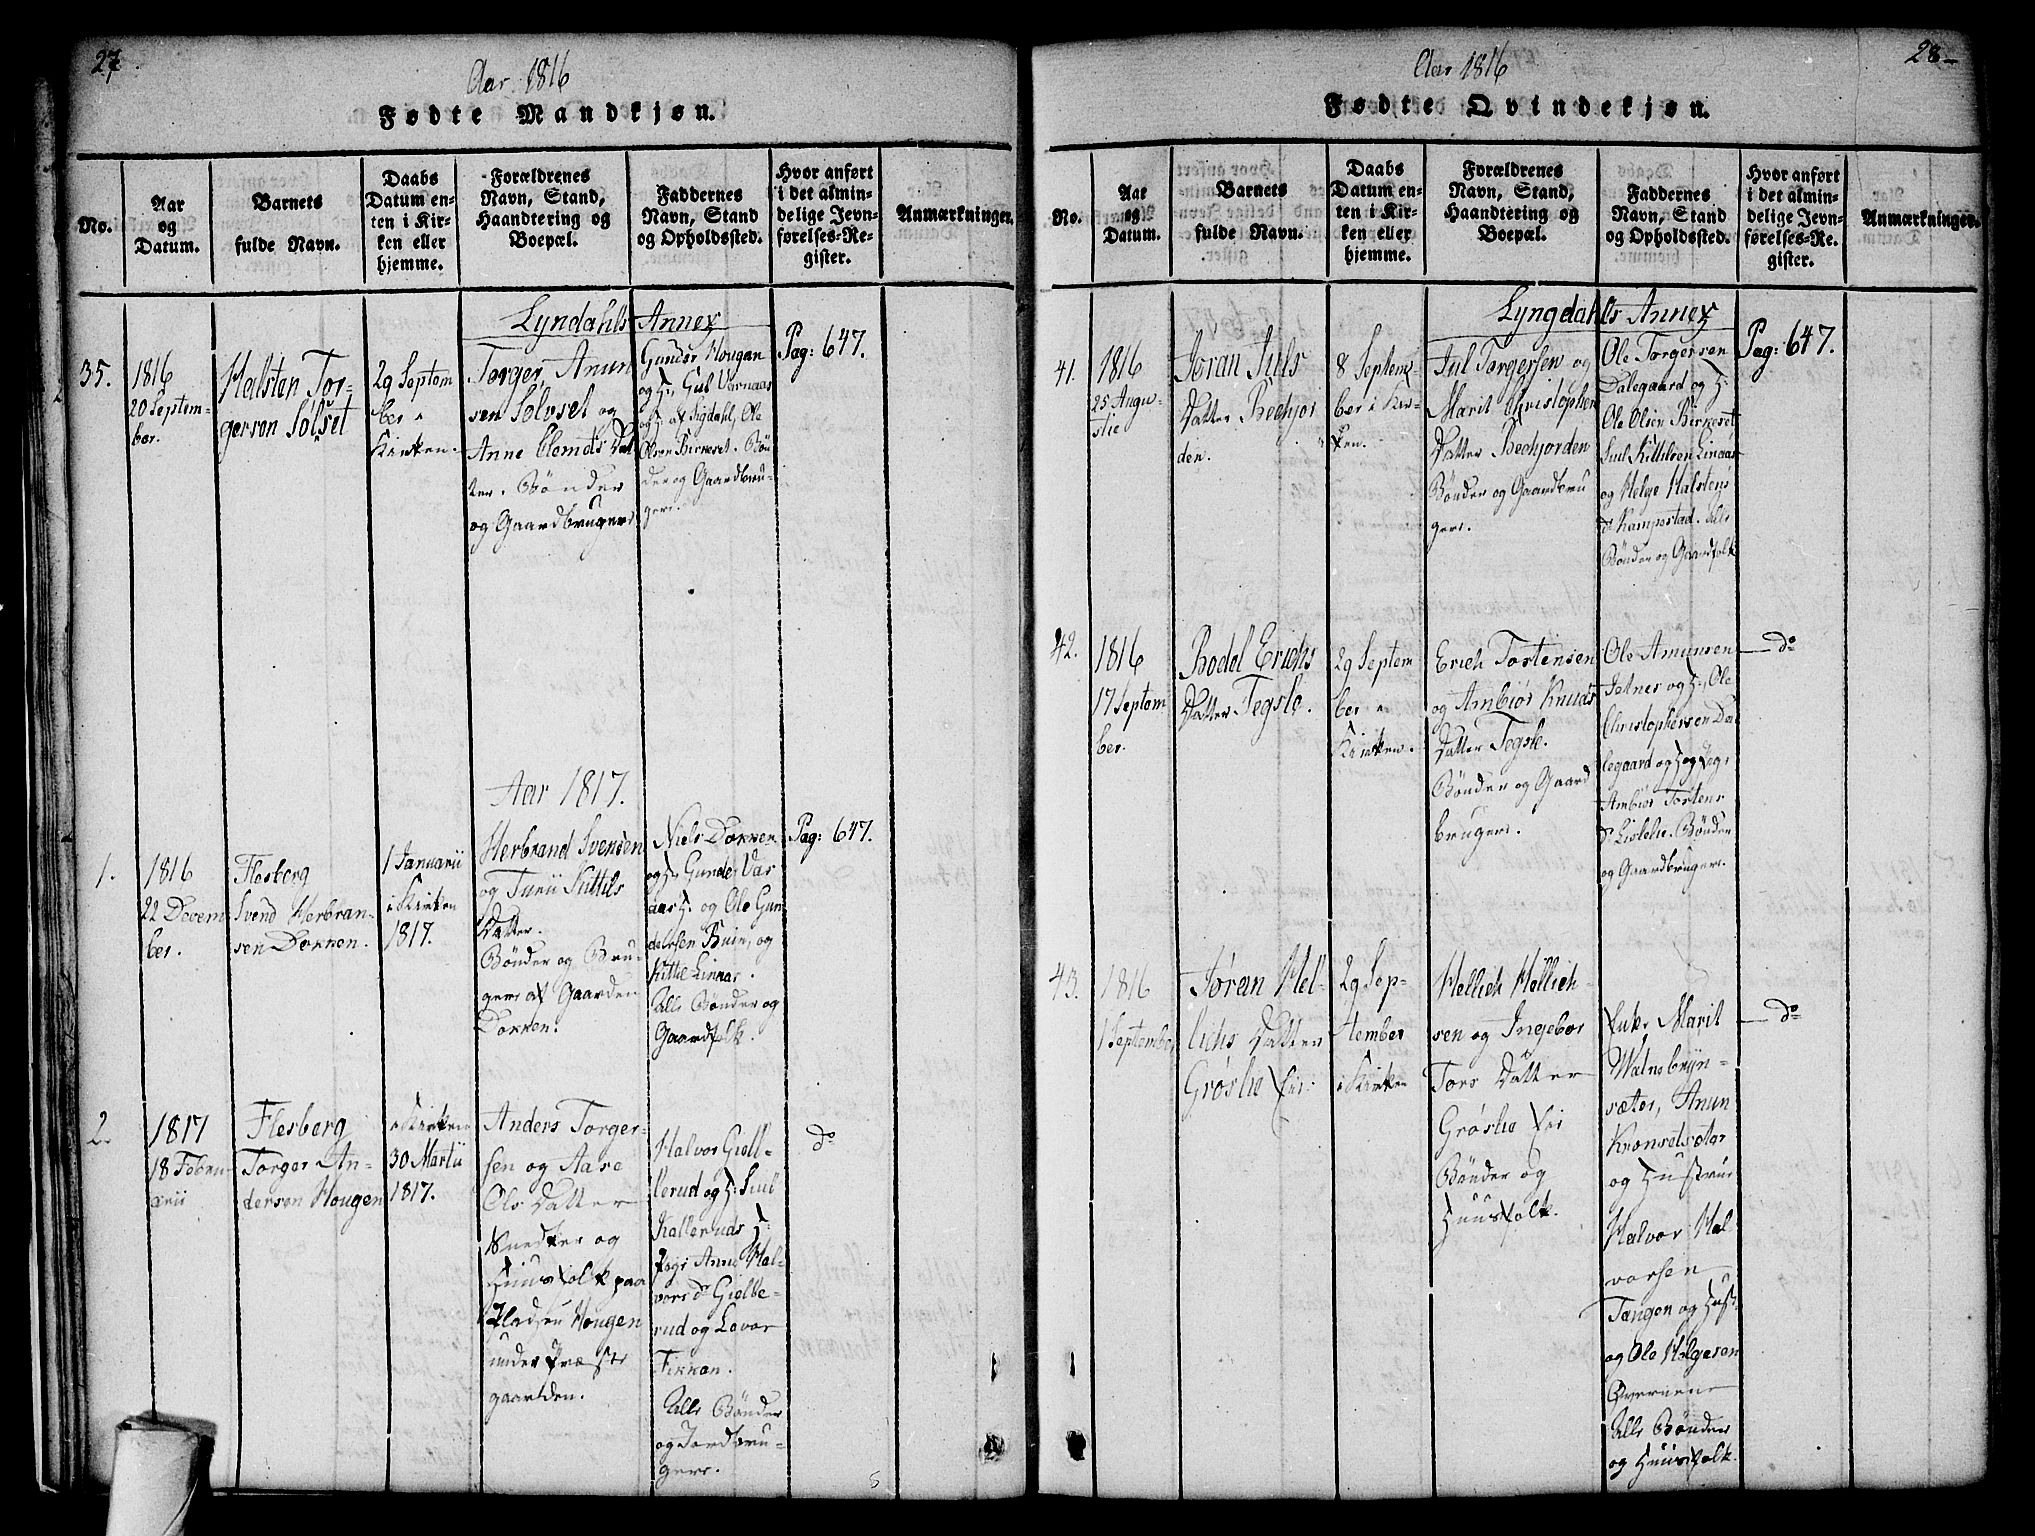 27.
Aar 1816
Fødte Mandkjøn.
No.
Aar
og
Datum.
Barnets
fulde Navn.
Daabs
Datum en-
ten i Kir-
ken eller
hjemme.
Forældrenes
Navn, Stand,
Haandtering og
Boepæl.
Faddernes
Navn, Stand
og Opholdssted.
Hvor anført
i det almin-
delige Jevn-
førelses-Re-
gister.
Anmærkninger.
Lyndahls Annex
35.
1816
20 Septem-
ber.
Halsten Tor-
gersen Solset
29 Septem
ber i
Kirken.
Torger Anun
sen Solvset og
Anne Clemets Dat
ter. Bønder
og Gaardbrugere
Gunder Hougan
og H: Gul Vernaas
og H: af Sigdahl, Ole
Olsen Birkeset. Bøn
der og Gaardbru-
gere.
Pag: 647.
Aar 1817.
1.
1816
22 Decem
ber.
Flesberg
Svend Herbran-
sen Dokken.
1 Januarii
i Kirken
1817.
Herbrand Svensen
og Turii Kittils
Datter.
Bønder og Bru-
gere af Gaarden
Dokken.
Niels Dokken
og H: Gunder Vas
aas H: og Ole Gun
dersen Ruin, og
Kittil Linnas.
Alle Bønder og
Gaardfolk.
Pag: 647.
2.
1817
18 Febru-
arii
Flesberg
Torger An-
dersen Hougen
i Kirken
30 Martii
1817.
Anders Torger-
sen og Aase
Ols Datter
Snedker og
Huusfolk paa
Pladsen Hougen
under Præste
gaarden.
Halvor Gielle-
lerud og H:
Kallerud H:
Pige Anne Hal-
vors dr Gielle-
rud og Lavor
Fekkan.
Alle Bønder
og Jordbru-
gere.
do
5
28
Aar 1816
Fødte Qvindekjøn.
No.
Aar
og
Datum.
Barnets
fulde Navn.
Daabs
Datum en-
ten i Kir-
ken eller
hjemme.
Forældrenes
Navn, Stand,
Haandtering og
Boepæl.
Faddernes
Navn, Stand
og Opholdssted.
Hvor anført
i det almin-
delige Jevn-
førelses-Re-
gister.
Anmærkninger.
Lyngdahls Annex
41.
1816
25 Augu-
stie
Joran Juls
Datter Beehjor
den.
8 Septem-
ber i Kir-
ken.
Jul Torgersen og
Marit Christopher
Datter Beehjorden
Bønder og Gaardbru
gere.
Ole Torgersen
Dalegaard og H:
Ole Olsen Birkeset
Juul Kittilsen Linaas
og Helge Halstens
dr Kampestad. Alle
Bønder og Gaardfolk
Pag: 647.
42.
1816
17 Septem
ber.
Bodel Erichs
Datter Tegsle.
29 Septem
ber i
Kirken.
Erich Tostensen
og Ambiør Knuds
Datter Tegsle.
Bønder og Gaard
brugere.
Ole Amunsen
Jatnes og H:, Ole
Christophersen Da
legaard og H og Pige
Ambiør Tostens
dr Lislehe. Bønder
og Gaardbrugere.
do
43.
1816
1 September
Jøran Hel-
lichs Datter
Grøslie Eie:
29 Sep-
tember
i Kirken
Hellich Hellich-
sen og Ingebor
Tors Datter
Grøslie Eie
Bønder og
Huusfolk.
Enke Marit
Walnsbryn-
sæter, Anun
Kronsetsæter
og Hustrue
Halvor Hal-
vorsen
Tangen og Hust:
og Ole Helgesen
Qvernene
Alle Bønder
og Huusfolk.
do